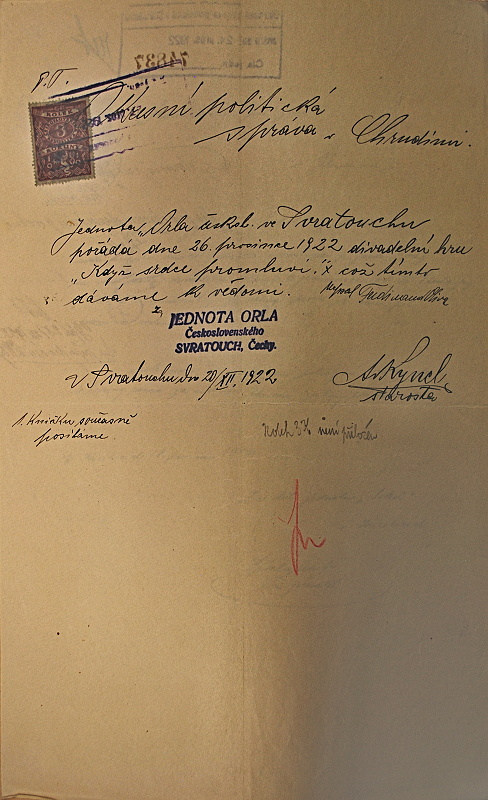 74837
P.T.
Okresní politická
správa v Chrudimi.
KOLEK
3
KORUNY
Jednota „Orla českosl. ve Svratouchu
pořádá dne 26. prosince 1922 divadelní hru
„Když srdce promluví." což tímto
dáváme k vědomí. napsal Ferdinand
JEDNOTA ORLA
Československého
SVRATOUCH, Čechy.
V Svratouchu dne 20/XII. 1922
A. Kyncl
starosta
1. Knížku současně
posíláme.
Kolek 3 K není přiložen